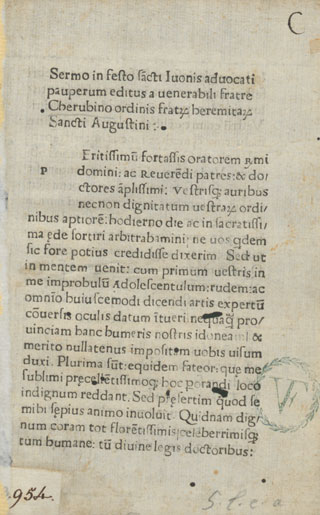 C
Sermo in festo sācti Iuonis aduocati
pauperum editus a uenerabili fratre
Cherubino ordinis fratꝝ heremitaꝝ
Sancti Augustini :·
P Eritissimū fortassis oratorem Rmi
domini: ac Reuerēdi patres: & do/
ctores āplissimi: vestrisqꝫ auribus
necnon dignitatum uestraꝝ ordi/
nibus aptiorē: hodierno die ac in sacratissi/
ma ede sortiri arbitrabamini: ne uos qdem
sic fore potius credidisse dixerim. Sed ut
in mentem uenit: cum primum uestris in
me improbulū Adolescentulum: rudem: ac
omnīo huiuscemodi dicendi artis expertū
cōuersis oculis datum ītueri nequaqꝫ pro/
uinciam hanc humeris nostris idoneam: &
merito nullatenus impositam uobis uisum
duxi. Plurima sūt: equidem fateor: que me
sublimi precellētissimoqꝫ hoc perandi loco
indignum reddant. Sed presertim quod se
mihi sepius animo inuoluit. Quidnam dig/
num coram tot florētissimis: celeberrimisqꝫ
tum humane: tū diuine legis doctoribus:
954.
S. l. e a